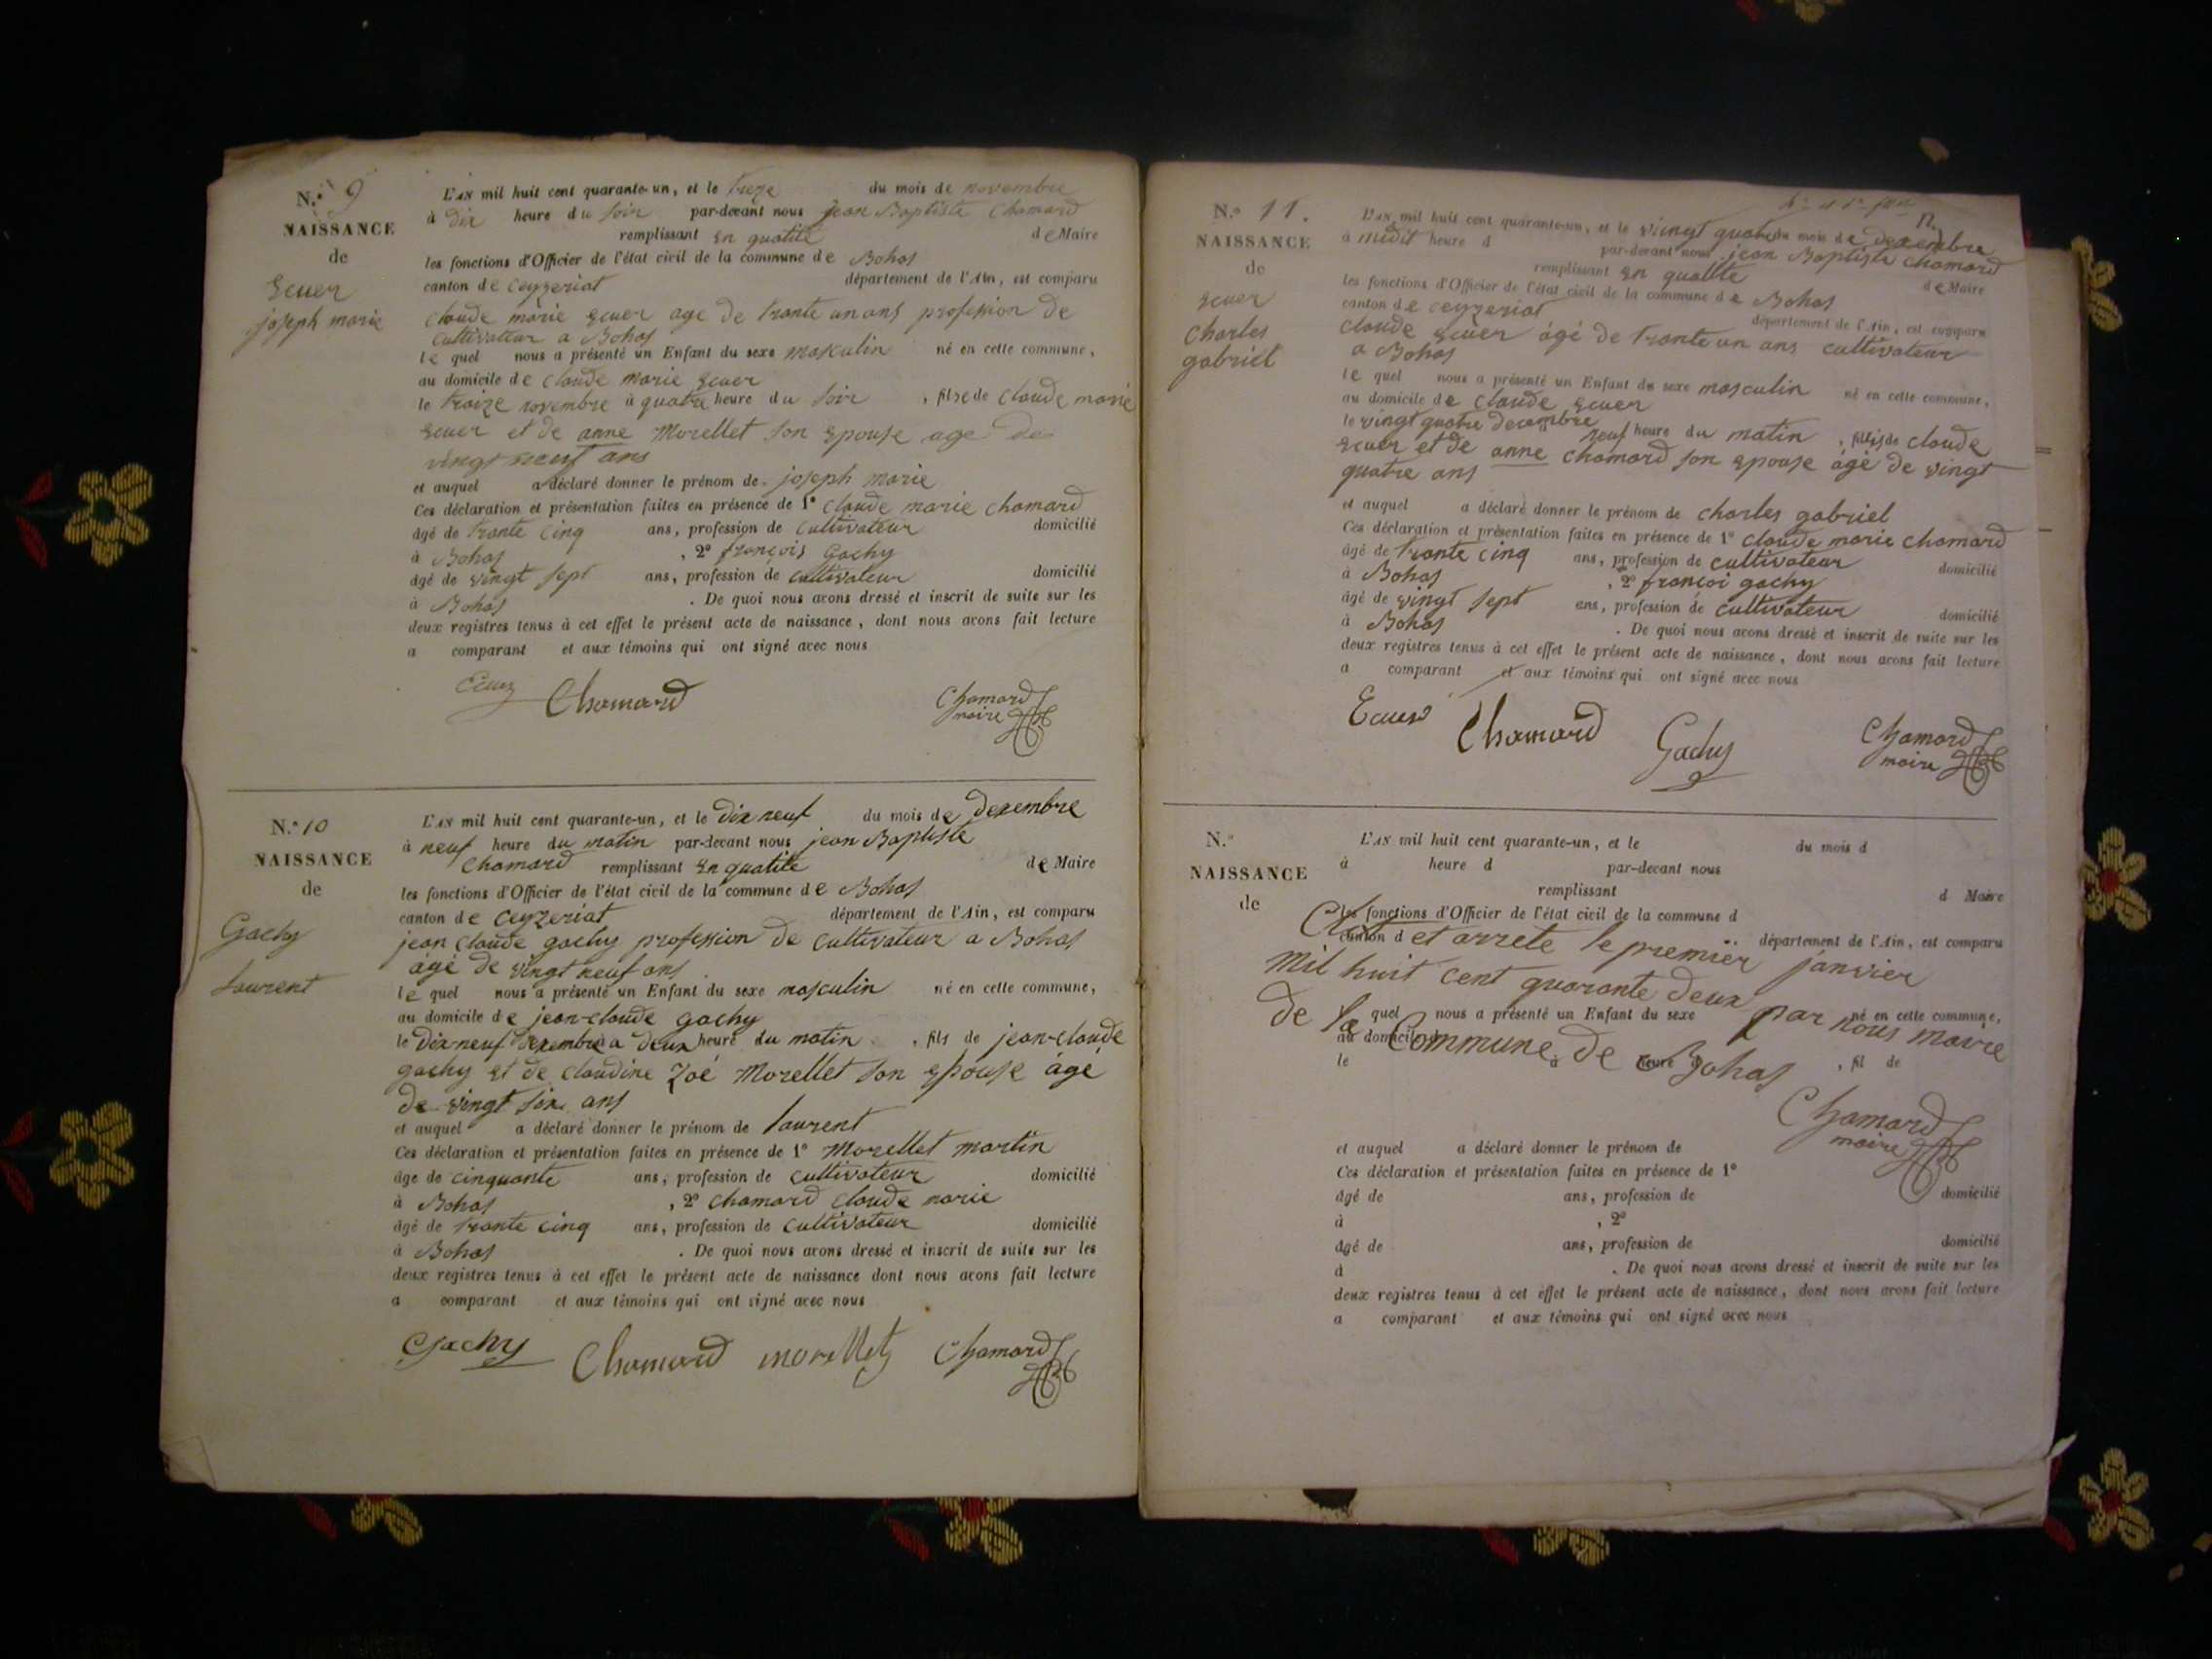 N.° 9
NAISSANCE
de
Ecuer
joseph marie
L'AN mil huit cent quarante-un, et le treze du mois de novembre
à dix heure du soir par-devant nous jean Baptiste Chamard
remplissant en qualité de Maire
les fonctions d'Officier de l'état civil de la commune de Bohas
canton de ceyzeriat département de l'Ain, est comparu
claude marie Ecuer age de trante un ans profession de
cultivateur a Bohas
le quel nous a présenté un Enfant du sexe masculin né en cette commune,
au domicile de claude marie Ecuer
le traize novembre à quatre heure du soir, fils de claude marie
Ecuer et de anne Morellet son Epouse age de
vingt neuf ans
et auquel a déclaré donner le prénom de joseph marie
Ces déclaration et présentation faites en présence de 1° claude marie chamard
âgé de trante cinq ans, profession de cultivateur domicilié
à Bohas, 2° françois Gachy
âgé de vingt sept ans, profession de cultivateur domicilié
à Bohas. De quoi nous avons dressé et inscrit de suite sur les
deux registres tenus à cet effet le présent acte de naissance, dont nous avons fait lecture
a comparant et aux témoins qui ont signé avec nous
Ecuer Chamard Chamard
maire
N.° 10
NAISSANCE
de
Gachy
laurent
L'AN mil huit cent quarante-un, et le dix neuf du mois de dexembre
à neuf heure du matin par-devant nous jean Baptiste
Chamard remplissant en qualité de Maire
les fonctions d'Officier de l'état civil de la commune de Bohas
canton de ceyzeriat département de l'Ain, est comparu
jean claude gachy profession de cultivateur a Bohas
âgé de vingt neuf ans
le quel nous a présenté un Enfant du sexe masculin né en cette commune,
au domicile de jean-claude gachy
le dix-neuf dexembre a deux heure du matin, fils de jean-claude
gachy et de claudine Zoé Morellet son Epouse âgé
de vingt six ans
et auquel a déclaré donner le prénom de laurent
Ces déclaration et présentation faites en présence de 1° Morellet martin
âge de cinquante ans, profession de cultivateur domicilié
à Bohas, 2° chamard claude marie
âgé de trante cinq ans, profession de cultivateur domicilié
à Bohas. De quoi nous avons dressé et inscrit de suite sur les
deux registres tenus à cet effet le présent acte de naissance dont nous avons fait lecture
a comparant et aux témoins qui ont signé avec nous
Gachy Chamard morellet Chamard
N.° 11.
NAISSANCE
de
Ecuer
Charles
gabriel
L'AN mil huit cent quarante-un, et le vingt quatre du mois de dexembre
à midit heure d par-devant nous jean Baptiste chamard
remplissant en qualite de Maire
les fonctions d'Officier de l'état civil de la commune de Bohas
canton de ceyzeriat département de l'Ain, est comparu
claude Ecuer âgé de trante un ans cultivateur
a Bohas
le quel nous a présenté un Enfant du sexe masculin né en cette commune,
au domicile de claude Ecuer
le vingt quatre decembre neuf heure du matin, fils de claude
Ecuer et de anne chamard son Epouse âgé de vingt
quatre ans
et auquel a déclaré donner le prénom de charles gabriel
Ces déclaration et présentation faites en présence de 1° claude marie chamard
âgé de trante cinq ans, profession de cultivateur domicilié
à Bohas, 2° françoi gachy
âgé de vingt sept ans, profession de cultivateur domicilié
à Bohas. De quoi nous avons dressé et inscrit de suite sur les
deux registres tenus à cet effet le présent acte de naissance, dont nous avons fait lecture
a comparant et aux témoins qui ont signé avec nous
Ecuer Chamard Gachy Chamard
maire
N.°
NAISSANCE
de
L'AN mil huit cent quarante-un, et le du mois d
à heure d par-devant nous
remplissant d Maire
les fonctions d'Officier de l'état civil de la commune d
canton d département de l'Ain, est comparu
Clot et arrete le premier janvier
mil huit cent quarante deux par nous maire
quel nous a présenté un Enfant du sexe né en cette commune,
de la Commune de Bohas
au domicile d
le à heure d, fil de
Chamard
maire
et auquel a déclaré donner le prénom de
Ces déclaration et présentation faites en présence de 1°
âgé de ans, profession de domicilié
à, 2°
âgé de ans, profession de domicilié
à. De quoi nous avons dressé et inscrit de suite sur les
deux registres tenus à cet effet le présent acte de naissance, dont nous avons fait lecture
a comparant et aux témoins qui ont signé avec nous